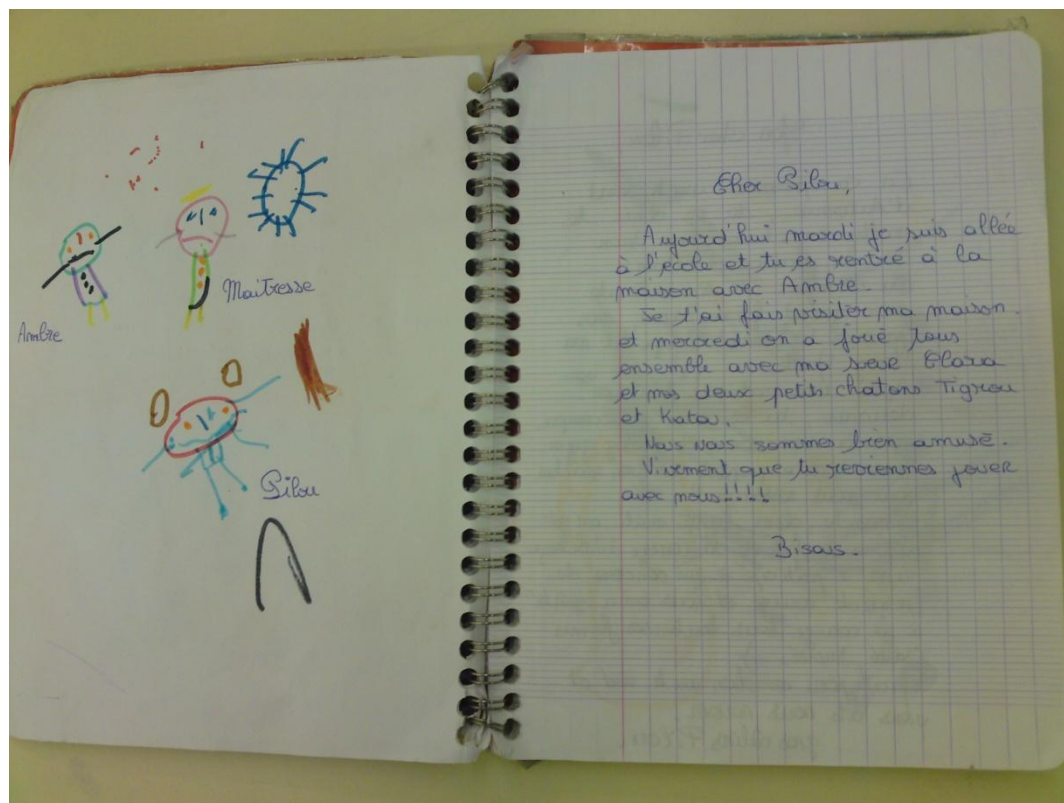 Ambre
Maîtresse
Pilou
Cher Pilou,
Aujourd'hui mardi je suis allée
à l'école et tu es rentré à la
maison avec Ambre.
Je t'ai fais visiter ma maison.
et mercredi on a joué tous
ensemble avec ma sœur Clara
et mes deux petits chatons Tigrou
et Kata.
Nous nous sommes bien amusé.
Vivement que tu reviennes jouer
avec nous!!!!
Bisous.